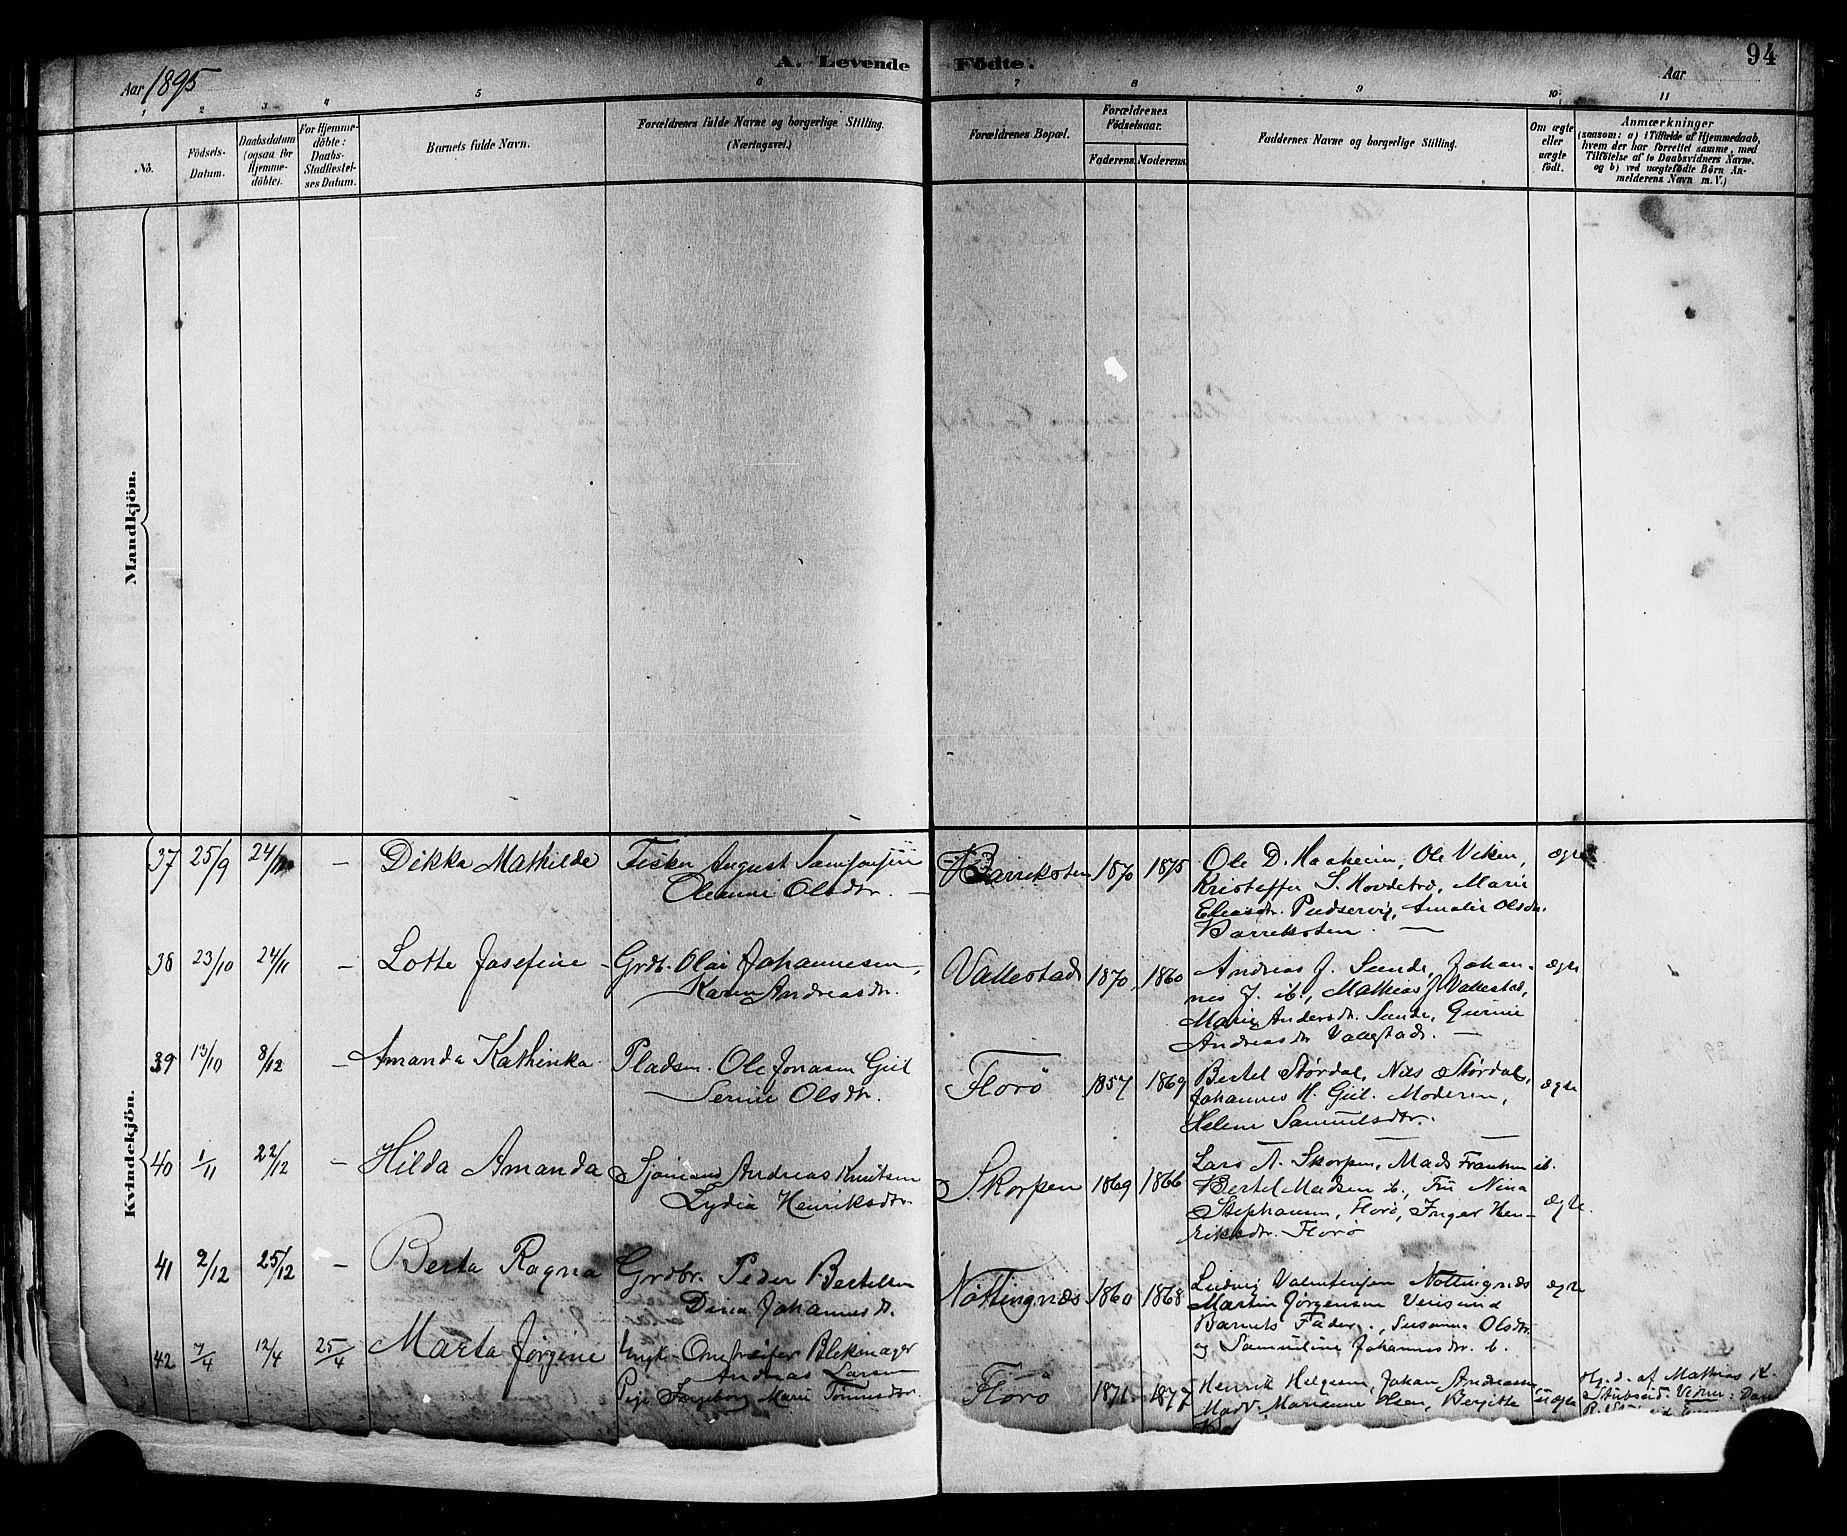 94
A. Levende Födte.
Aar 1895
Aar
1 2 3 4 5 6 7 8 9 10 11
No.
Födsels-Datum.
Daabsdatum (ogsaa for Hjemmedöbte).
For Hjemmedöbte: Daabs-Stadfæstelses Datum.
Barnets fulde Navn.
Forældrenes fulde Navne og borgerlige Stilling. (Næringsvei.)
Forældrenes Bopæl.
Forældrenes Födselsaar.
Faderens. Moderens.
Faddernes Navne og borgerlige Stilling.
Om ægte eller uægte födt.
Anmærkninger (saasom: a) i Tilfælde af Hjemmedaab, hvem der har forrettet samme, med Tilföielse af to Daabsvidners Navne, og b) ved uægtefödte Börn Anmelderens Navn m. V.)
Mandkjön.
Kvindekjön.
37 25/9 24/11 – Dikka Mathilde
Fisker August
Oleanne Olsdtr.
Barrekoten 1870 1875
Ole D. Haaheim, Ole Viken,
Kristoffer S. Hovdetræ, Marie
Eliasdr. Pudservig, Amalie Olsdr.
Barrekoten. —
ægte
38 23/10 24/11 – Lotte Josefine
Grdbr. Olai Johannesen,
Karen Andreasdr.
Vallestad 1870 1860
Andreas J. Sunde, Johan-
nes J. ib., Mathias J. Vallestad,
Marie Andersdr. Sunde, Gurine
Andreasdr Vallestad. —
ægte
39 13/10 8/12 – Amanda Kathinka
Pladsm. Ole Jonasen Gul
Serine Olsdtr.
Florö 1857 1869
Bertel Stördal, Nils Stördal,
Johannes H. Gul. Moderen,
Helene Samuelsdtr.
ægte
40 1/11 22/12 – Hilda Amanda
Sjömand Andreas Knutsen
Lydia Henriksdtr.
Skorpen 1869 1866
Lars A. Skorpen, Mads Frantsen ib.
Bertel Madsen ib., Fru Nina
Stephansen, Florö, Inger Hen-
riksdtr. Florö
ægte.
41 2/12 25/12 – Berta Ragna
Grdbr. Peder Bertelsen
Dina Johannesdr.
Nöttingnæs 1860 1868
Ludvig Valentinsen Nöttingnæs
Martin Jörgensen Veisund
Barnets Fader., Susanna Olsdtr.
og Samueline Johannesdtr. ib.
ægte
42 7/4 12/4 25/4 Marta Jörgine
Ungk. Omstreifer Blekmager
Andreas Larsen
Pige Ingeborg Marie Tönnesdtr.
Florö 1871 1877
Henrik Helgesen, Johan Andreasen
Madv. Marianne Olsen, Bergitte
uægte
Hj.d. af Mathias K.